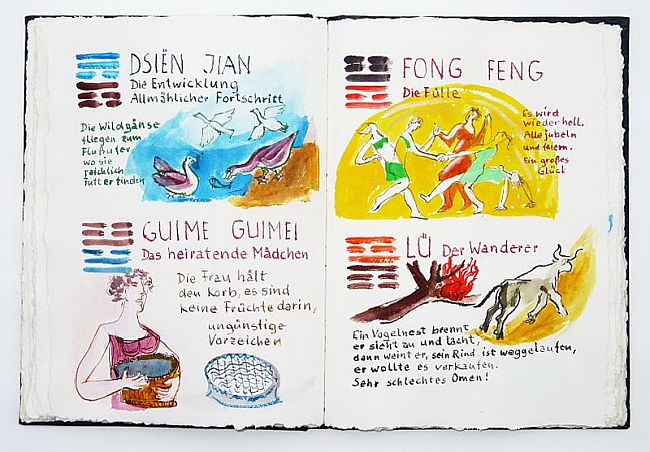 DSIËN JIAN
Die Entwicklung
Allmählicher Fortschritt
Die Wildgänse
fliegen zum
Flußufer
wo sie
reichlich
Futter finden
GUIME GUIMEI
Das heiratende Mädchen
Die Frau hält
den Korb, es sind
keine Früchte darin,
ungünstige
Vorzeichen
FONG FENG
Die Fülle
Es wird
wieder hell.
Alle jubeln
und feiern.
Ein großes
Glück
LÜ Der Wanderer
Ein Vogelnest brennt
er sieht zu und lacht,
dann weint er, sein Rind ist weggelaufen,
er wollte es verkaufen.
Sehr schlechtes Omen!